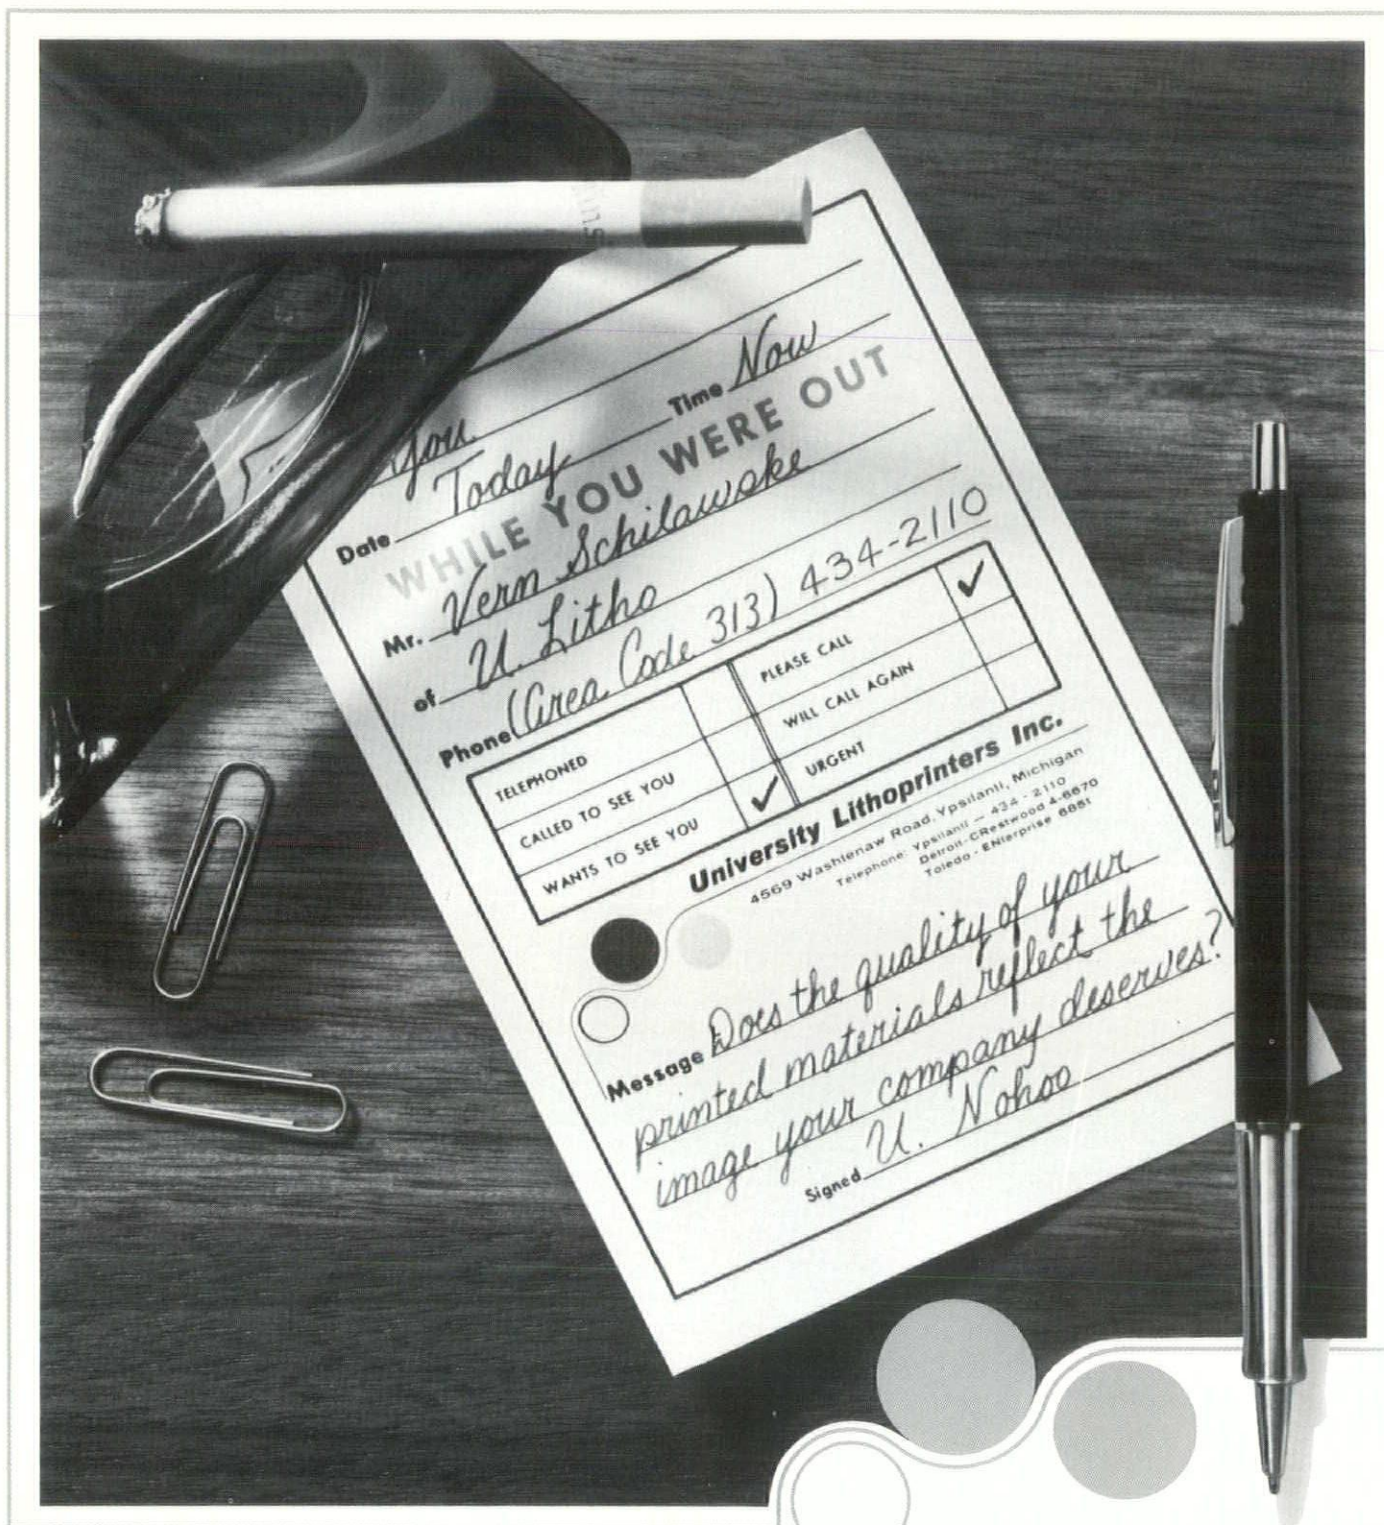 You
Date Today Time Now
WHILE YOU WERE OUT
Mr. Vern Schilawske
of U. Litho
Phone (Area Code 313) 434-2110
TELEPHONED
PLEASE CALL ✓
CALLED TO SEE YOU
WILL CALL AGAIN
WANTS TO SEE YOU ✓
URGENT
University Lithoprinters Inc.
4569 Washtenaw Road, Ypsilanti, Michigan
Telephone: Ypsilanti — 434 - 2110
Detroit-CRestwood 4-6670
Toledo - ENterprise 6881
Message Does the quality of your
printed materials reflect the
image your company deserves?
Signed U. Nohoo